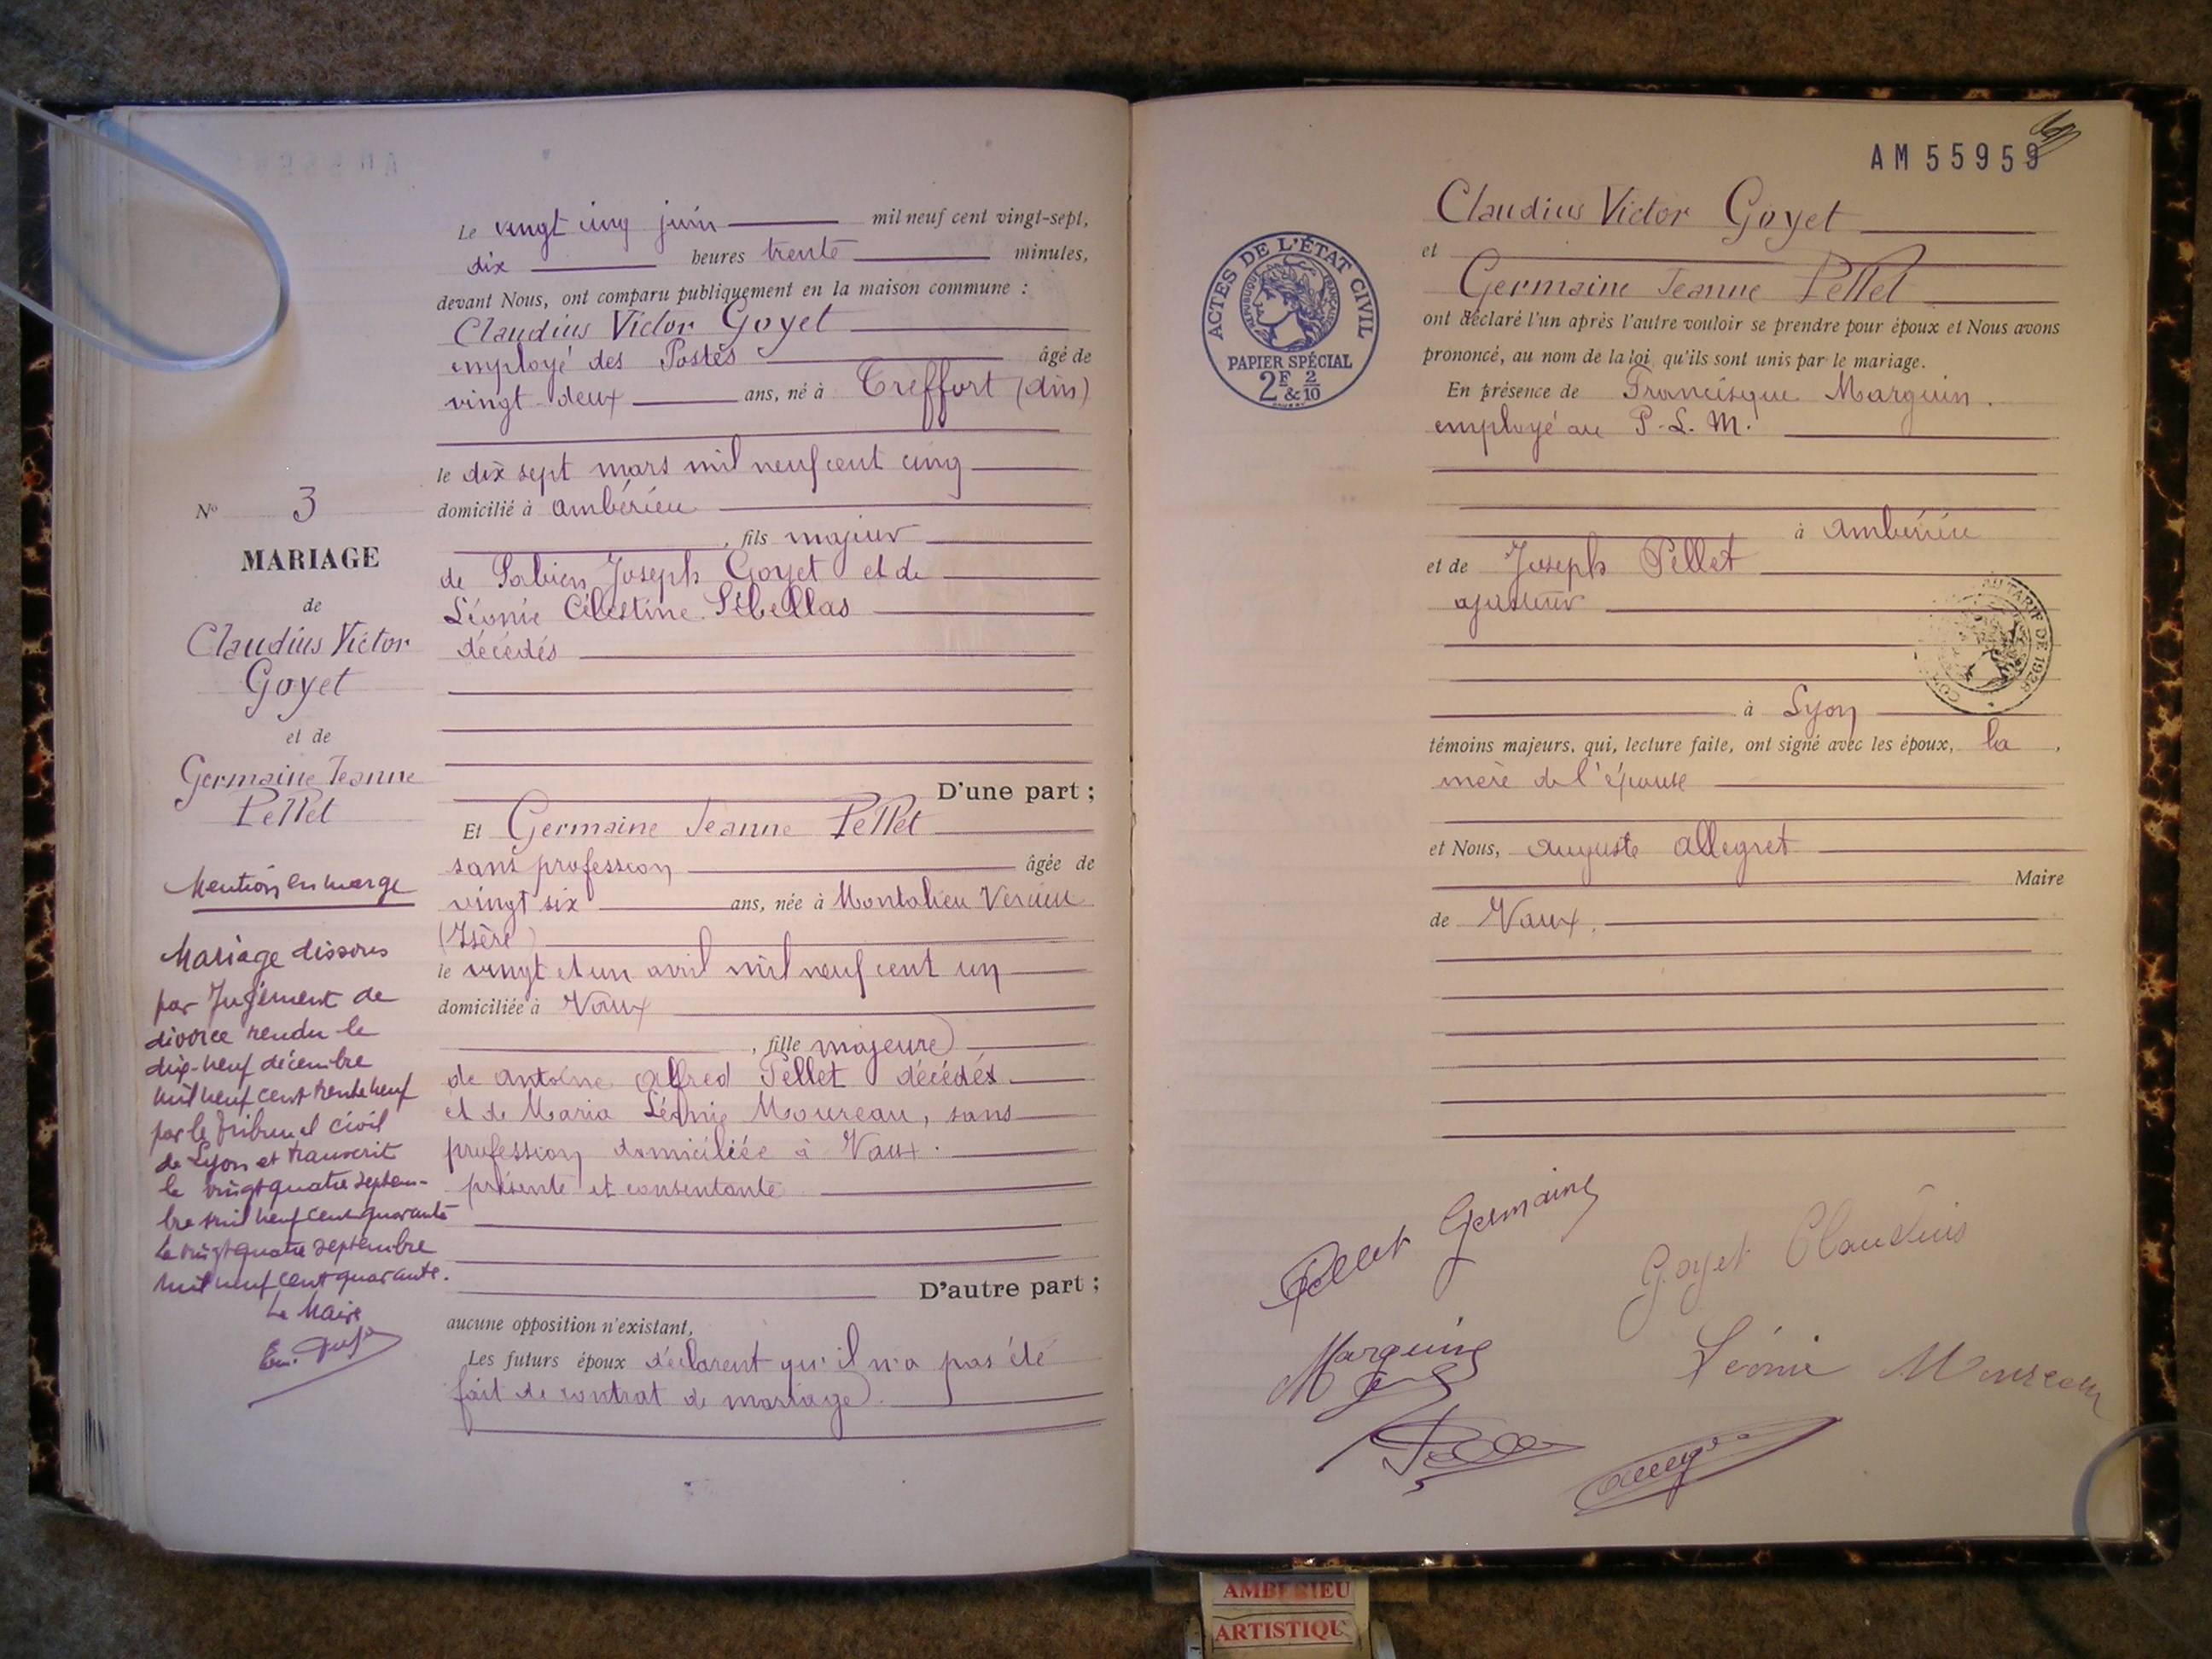 N° 3
MARIAGE
de
Claudius Victor
Goyet
et de
Germaine Jeanne
Pellet
Mention en marge
Mariage dissous
par Jugement de
divorce rendu le
dix-neuf décembre
mil neuf cent trente neuf
par le tribunal civil
de Lyon et transcrit
le vingt quatre septem-
bre mil neuf cent quarante
Le vingt quatre septembre
mil neuf cent quarante.
Le Maire
Le vingt cinq juin mil neuf cent vingt-sept,
dix heures trente minutes,
devant Nous, ont comparu publiquement en la maison commune :
Claudius Victor Goyet
employé des Postes âgé de
vingt deux ans, né à Treffort (Ain)
le dix sept mars mil neuf cent cinq
domicilié à Ambérieu
, fils majeur
de Joseph Goyet et de
Léonie Célestine
décédés
D'une part ;
Et Germaine Jeanne Pellet
sans profession âgée de
vingt six ans, née à Montalieu Vercieu
(Isère)
le vingt et un avril mil neuf cent un
domiciliée à Vaux
, fille majeure
de Antoine Alfred Pellet décédés
et de Maria Léonie Moureau, sans
profession domiciliée à Vaux.
présente et consentante
D'autre part ;
aucune opposition n'existant,
Les futurs époux déclarent qu'il n'a pas été
fait de contrat de mariage.
AM 55959
ACTES DE L'ÉTAT CIVIL
RÉPUBLIQUE FRANÇAISE
PAPIER SPÉCIAL
2F & 2/10
Claudius Victor Goyet
et
Germaine Jeanne Pellet
ont déclaré l'un après l'autre vouloir se prendre pour époux et Nous avons
prononcé, au nom de la loi, qu'ils sont unis par le mariage.
En présence de Francisque Marguin.
employé au P. L. M.
à Ambérieu
et de Joseph Pellet
ajusteur
AU TARIF DE
à Lyon
témoins majeurs, qui, lecture faite, ont signé avec les époux, la ,
mère de l'épouse
et Nous, Auguste Allegret
Maire
de Vaux.
Pellet Germaine
Goyet Claudius
Marguin
Léonie Moureau
AMBERIEU
ARTISTIQU